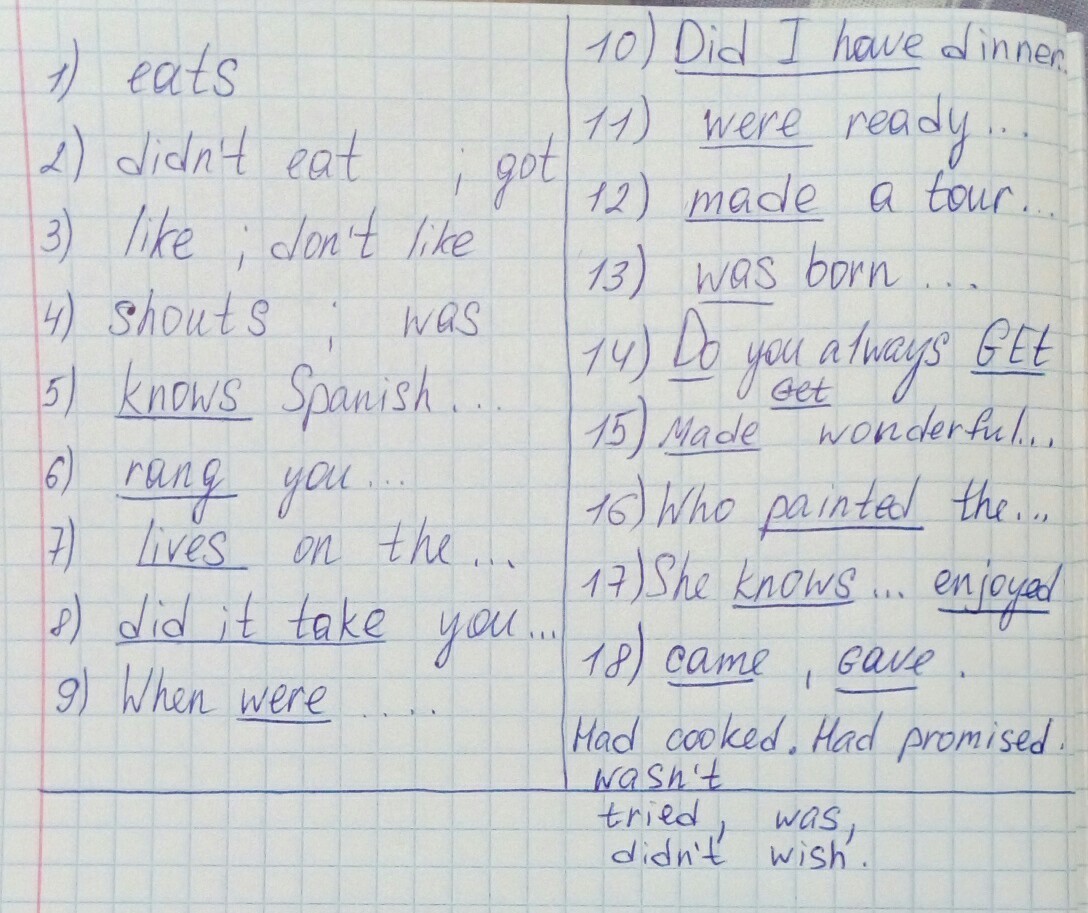 1) eats
2) didn't eat ; got
3) like ; don't like
4) shouts ; was
5) knows Spanish...
6) rang you...
7) lives on the...
8) did it take you...
9) When were ....
10) Did I have dinner.
11) were ready...
12) made a tour...
13) was born ...
14) Do you always GEt
Get
15) Made wonderful...
16) Who painted the...
17) She knows ... enjoyed
18) came , gave .
Had cooked. Had promised.
wasn't
tried, was,
didn't wish.